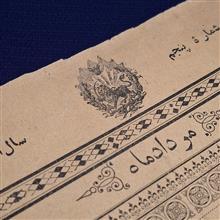 شماره پنجم
سال
مردادماه